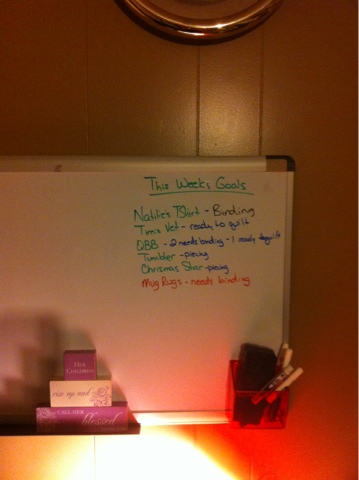 This Weeks Goals
Natilie's TShirt - Binding
Tim's Vet - ready to quilt
QBB - 2 needs binding - 1 ready to quilt
Tumbler - piecing
Chrismas Star - piecing
Mug Rugs - needs binding
HER
CHILDREN
rise up and
CALL HER
blessed